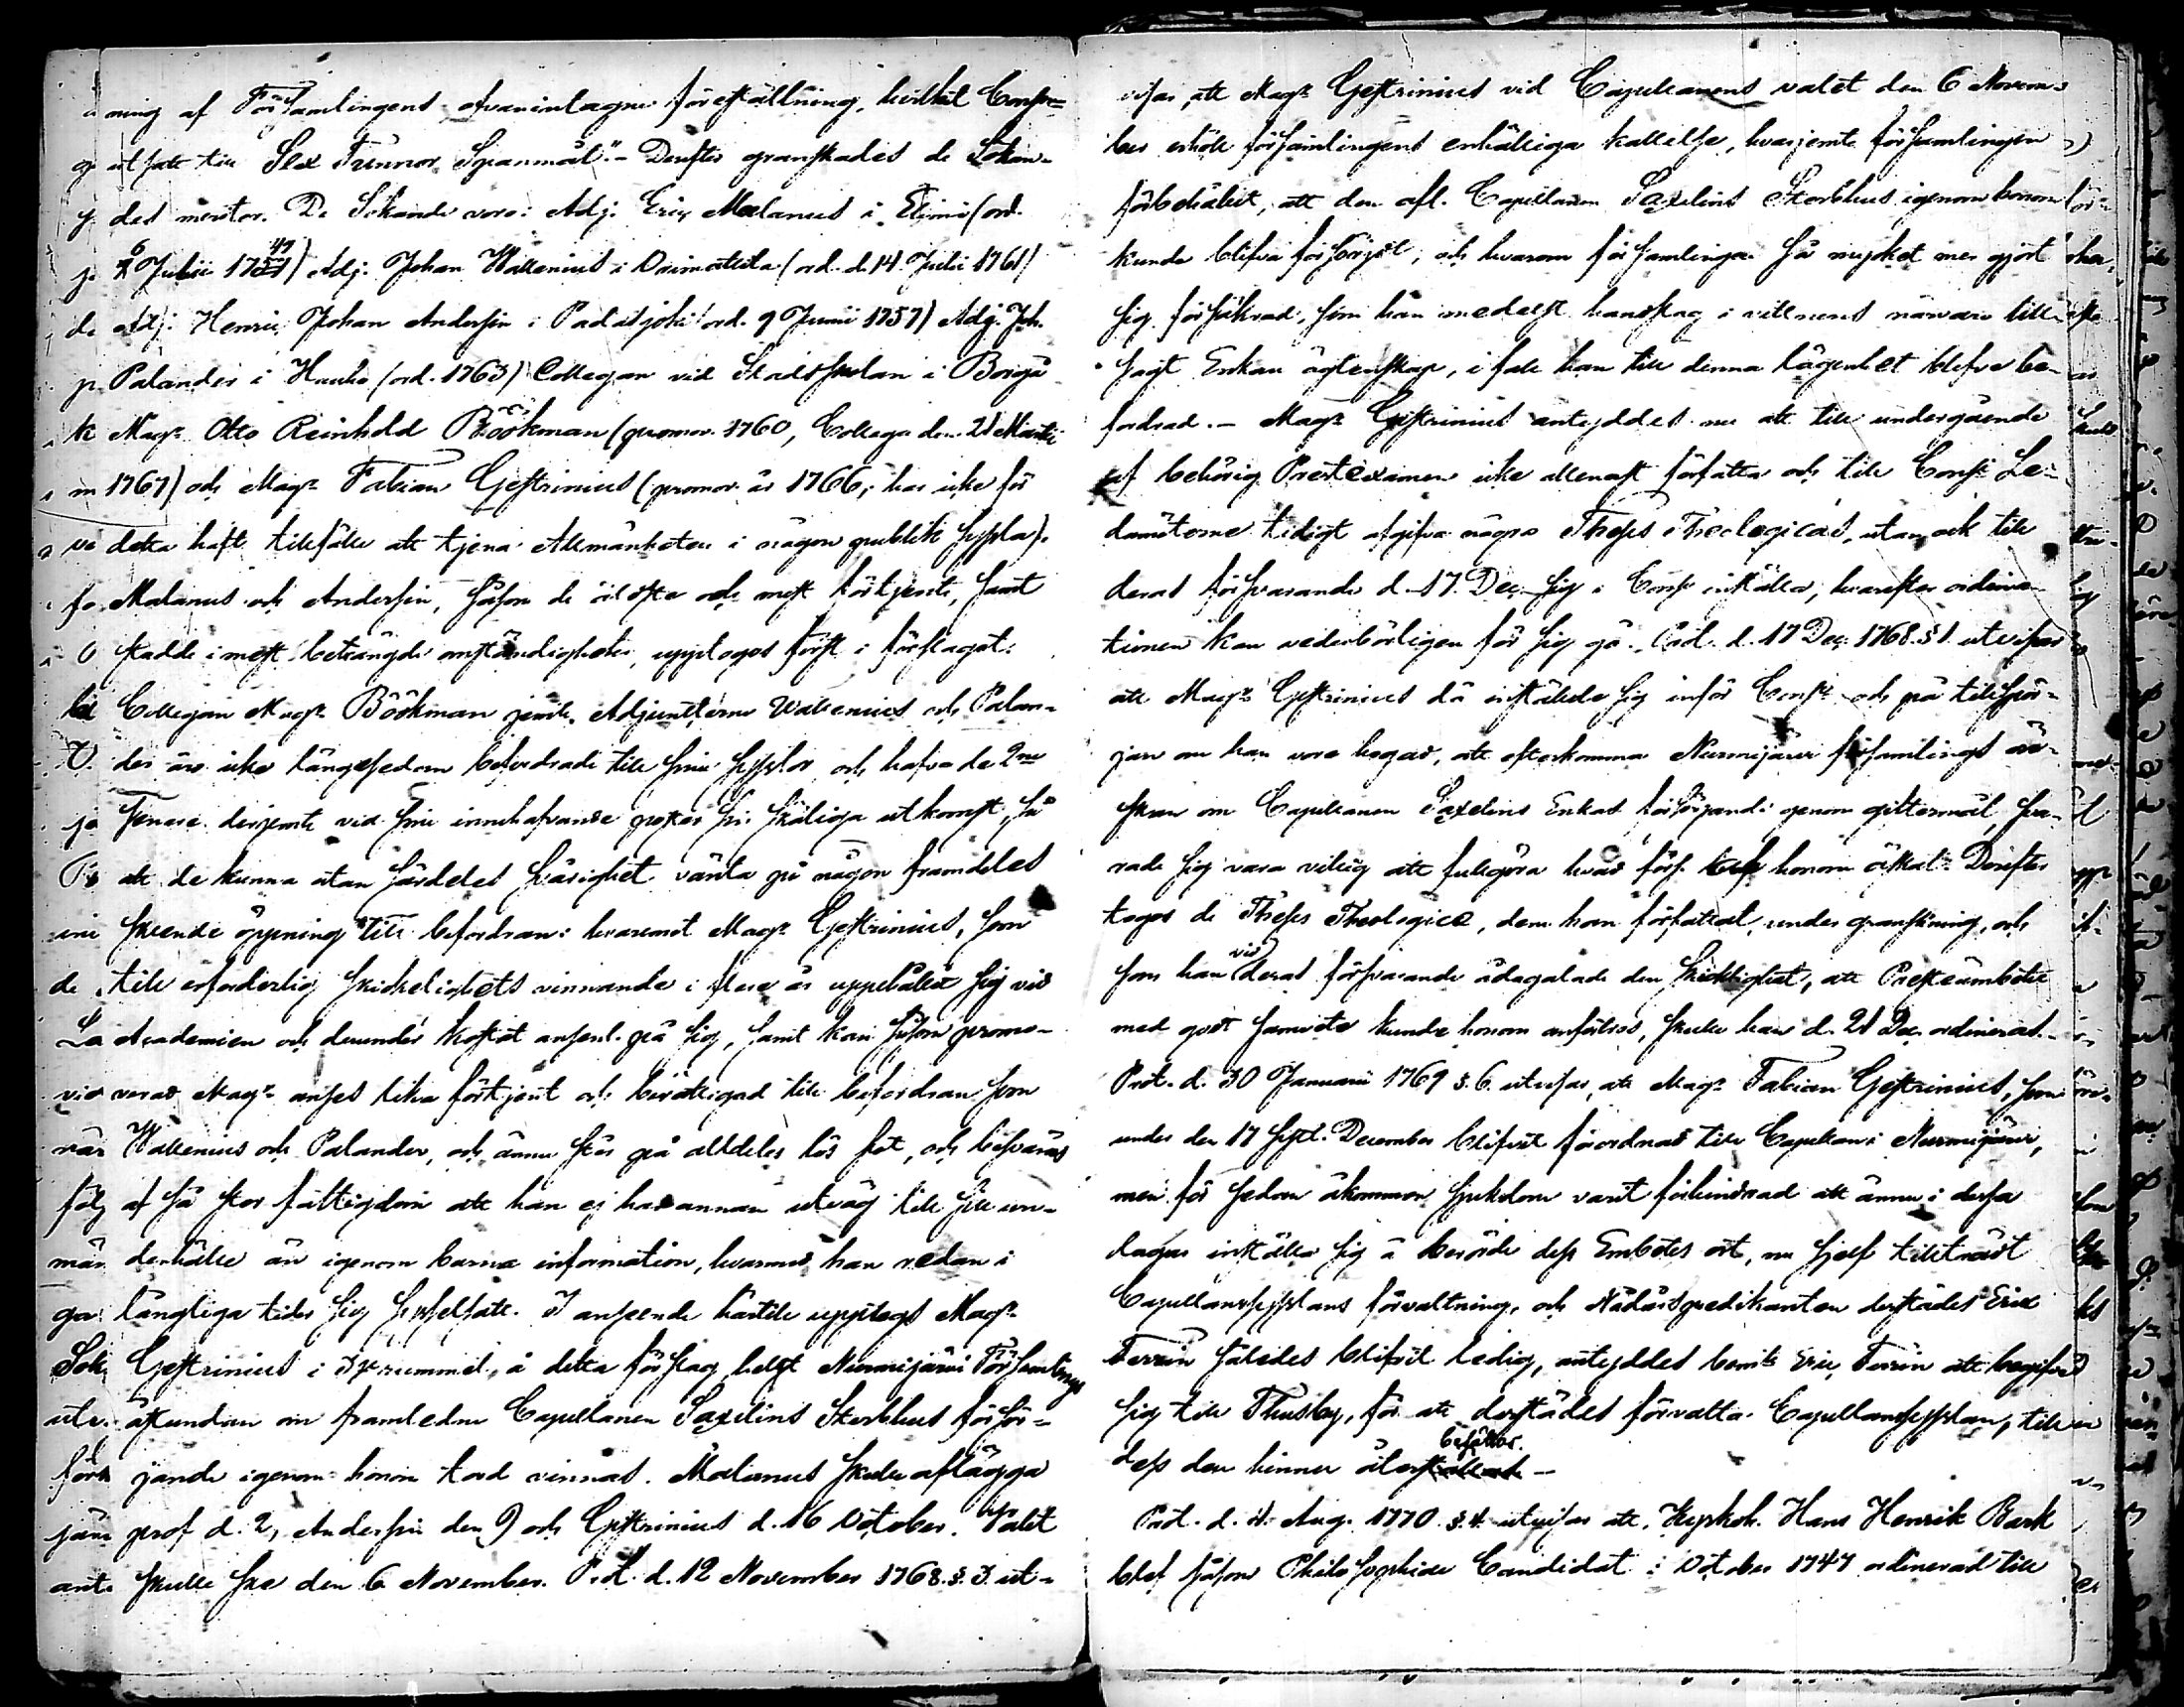 ning af Församlingens ofvanintagne föreställning, hvilket Consi=
utsatt till Sex Tunnor Spanmål." - Derefter granskades de Sökan-
des meriter. De Sökande voro: Adj. Eric Malanus i Elimä (ord.
6 Julii 1747) Adj. Johan Wallenius i Orimattila (ord. d. 14 Julii 1761)
Adj. Henric Johan Andersin i Padasjoki (ord. 9 Junii 1757) Adj. Joh.
Palander i Hauho (ord. 1763) Collegan vid Stadsskolan i Borgå
Magr Otto Reinhold Böökman (promov. 1760, Collega den 21 Martii
1767) och Magr Fabian Gestrinius (promov. år 1766, har icke för
detta haft tillfälle att tjena Allmänheten i någon publik syssla).
Malanus och Andersin, såsom de äldste och mest förtjente, samt
stadde i mest beträngde omständigheter, upptogos först i förslaget.
Collegan Magr Böökman jemte Adjuncterne Wallenius och Palan-
der äro icke längesedan befordrade till sine sysslor och hafva de 2ne
senere derjemte vid sine innehafvande poster sin skäliga utkomst, så
att de kunna utan särdeles svårighet vänta på någon framdeles
skeende öppning till befordran: hvaremot Magr Gestrinius, som
till erforderlig skickelighets vinnande i flere år uppehållit sig vid
Academien och derunder kostat ansenl. på sig, samt kan såsom promo-
verad Magr anses lika förtjent och berättigad till befordran som
Wallenius och Palander, och ännu står på alldeles lös fot, och besväras
af så stor fattigdom att han ej har annan utväg till sitt un-
derhålle än igenom barna information, hvarmed han redan i
långliga tider sig sysselsatt. I anseende härtill upptogs Magr
Gestrinius i 3je rummet, å detta förslag helst Nurmijärvi Församlings
åstundan om framledne Capellanen Saxelins Sterbhus försör=
jande igenom honom tord vinnas. Malanus skulle aflägga
prof d. 2, Andersin den 9 och Gestrinius d. 16 October. Valet
skulle ske den 6 November. Prot. d. 12 November 1768. §. 3. ut=
visar, att Magr Gestrinius vid Capellanens valet den 6 Novem-
ber erhöll församlingens enhälliga kallelse, hvarjemte församlingen
förbehållit, att den afl. Capellanen Saxelins Sterbhus igenom honom
kunde blifva försörgt, och hvarom församlingen så mycket mer gjort
sig försäkrad, som han medelst handslag i vittnens närvaro till-
sagt Enkan ägtenskap, i fall han till denna lägenhet blefve be-
fordrad. - Magr Gestrinius antyddes nu att till undergående
af behörig Prestexamen icke allenast författa och till Consist. Le-
damöterne tidigt afgifva några Theses Theologicas, utan ock till
deras försvarande d. 17 Dec. sig i Consist. inställa, hvarefter ordina-
tionen kan vederbörligen för sig gå. Prot. d. 17 Dec. 1768. § 1. utvisar
att Magr Gestrinius då inställde sig inför Consist. och på tillspör-
jan om han vore hogad, att efterkomma Nurmijärvi församlings ön-
skan om Capellanen Saxelins Enkas försörjande genom giftermål, sva-
rade sig vara villig att fullgöra hvad förs. honom åskat. Derefter
togos de Theses Theologicæ, dem han författat, under granskning, och
som han vid deras försvarande ådagalade den skicklighet, att Presteämbetet
med godt samvete kunde honom anförtros, skulle han d. 21 Dec. ordineras. -
Prot. d. 30 Januarii 1769 §. 6. utvisar, att Magr Fabian Gestrinius, som
under den 17 sistl. December blifvit förordnad till Capellan i Nurmijärvi,
men för sedan åkommen sjukdom varit förhindrad att ännu i dessa
dagar inställa sig å berörde dess Embetes ort, nu sjelf tillträdt
Capellanssysslans förvaltning, och Nådårspredikanten derstädes Eric
Ferrin således blifvit ledig, antyddes bemte Eric Ferrin att begifva
sig till Thusby, för att derstädes förvalta Capellanssysslan, till
dess den hinner åter besättas. -
Prot. d. Aug. 1770. §. 4. utvisar att Kyrkoh. Hans Henrik Bark
blef såsom Philosophiae Candidat i October 1747 ordinerad till